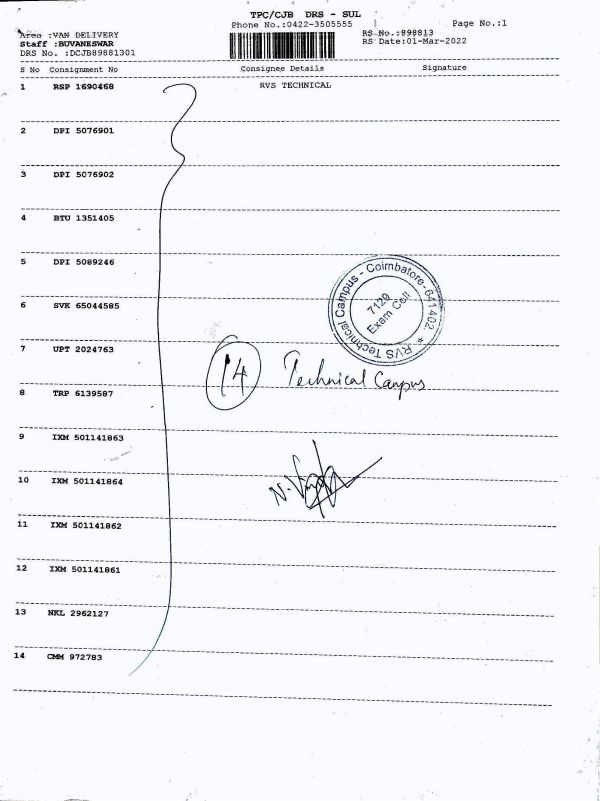 TPC/CJB DRS - SUL
Phone No.:0422-3505555 Page No.:1
Area :VAN DELIVERY RS No.:898813
Staff :BUVANESWAR RS Date:01-Mar-2022
DRS No. :DCJB89881301
S No Consignment No Consignee Details Signature
1 RSP 1690468 RVS TECHNICAL
2 DPI 5076901
3 DPI 5076902
4 BTU 1351405
5 DPI 5089246
6 SVK 65044585
7 UPT 2024763
8 TRP 6139587
9 IXM 501141863
10 IXM 501141864
11 IXM 501141862
12 IXM 501141861
13 NKL 2962127
14 CMM 972783
RVS Technical Campus - Coimbatore-641402 *
7129
Exam Cell
14 Technical Campus